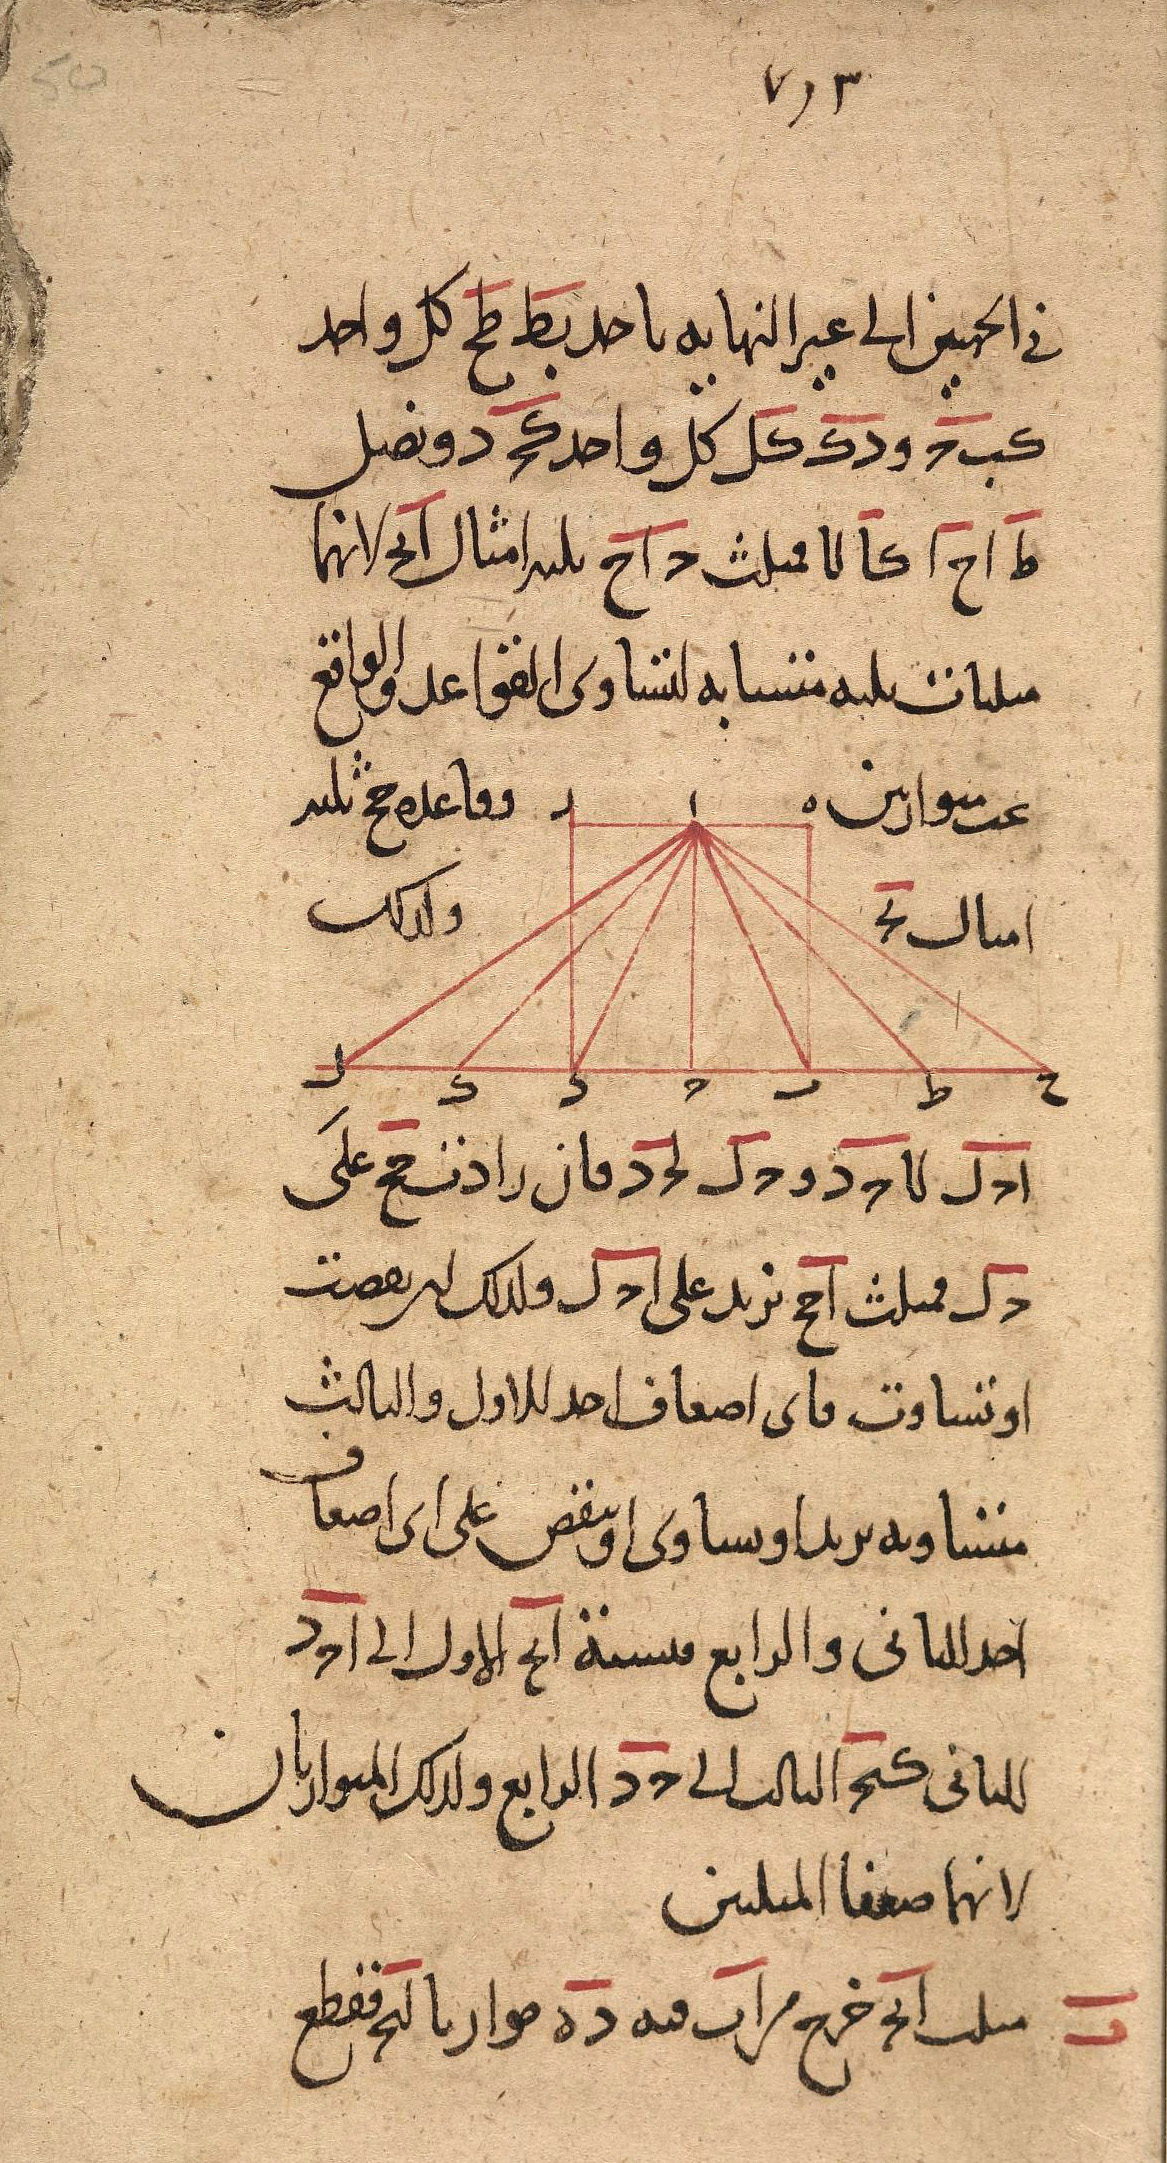 ٧٫٣
في الجهتين الى غير النهاية ناخذ بط طح كل واحد
كب حـ ودك كل كل واحد كحـ د ونصل
ط ا ح ا كا لا فمثلث حـ اح ثلثه امثال ابحـ لانها
مثلثات ثلثه متشابه لتساوى القواعد والواقع
بين متوازيين ه ا ر وقاعده حح ثلثه
امثال بحـ ولذلك
ل ك د حـ ب ط ح
احـ ل لا حـ د و حـ ل لحـ د فان زادت حح على
حـ ل فمثلث احح تزيد على احـ ل ولذلك ان نقصت
او تساوت فاى اضعاف اخذ للاول والثالث
متساويه يزيد او يساوى او ينقص على اى اضعاف
اخذ للثانى والرابع فنسبة ابحـ الاول الى احـ د
الثانى كبحـ الثالث الى حـ د الرابع ولذلك المتوازيان
لانهما ضعفا المثلثين
ب مثلث ابحـ خرج من اب فيه ده موازيا لبحـ فقطع